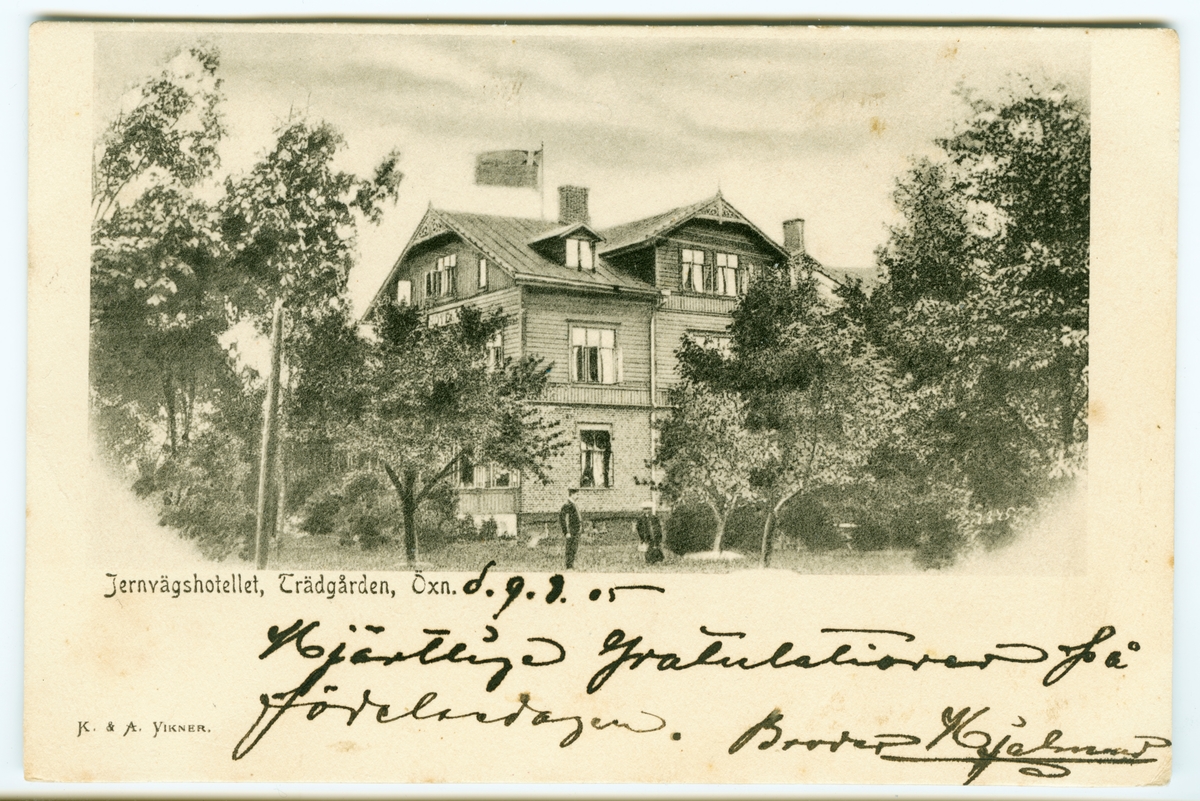 Jernvägshotellet, Trädgården, Öxn. d. 9.8. 05
Hjärtlige Gratulationer på
födelsedagen.
Broder Hjalmar
K. & A. VIKNER.